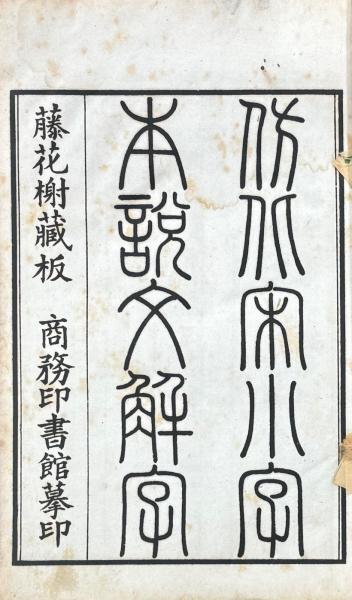 仿北宋小字
本說文解字
藤花榭藏板　商務印書館摹印